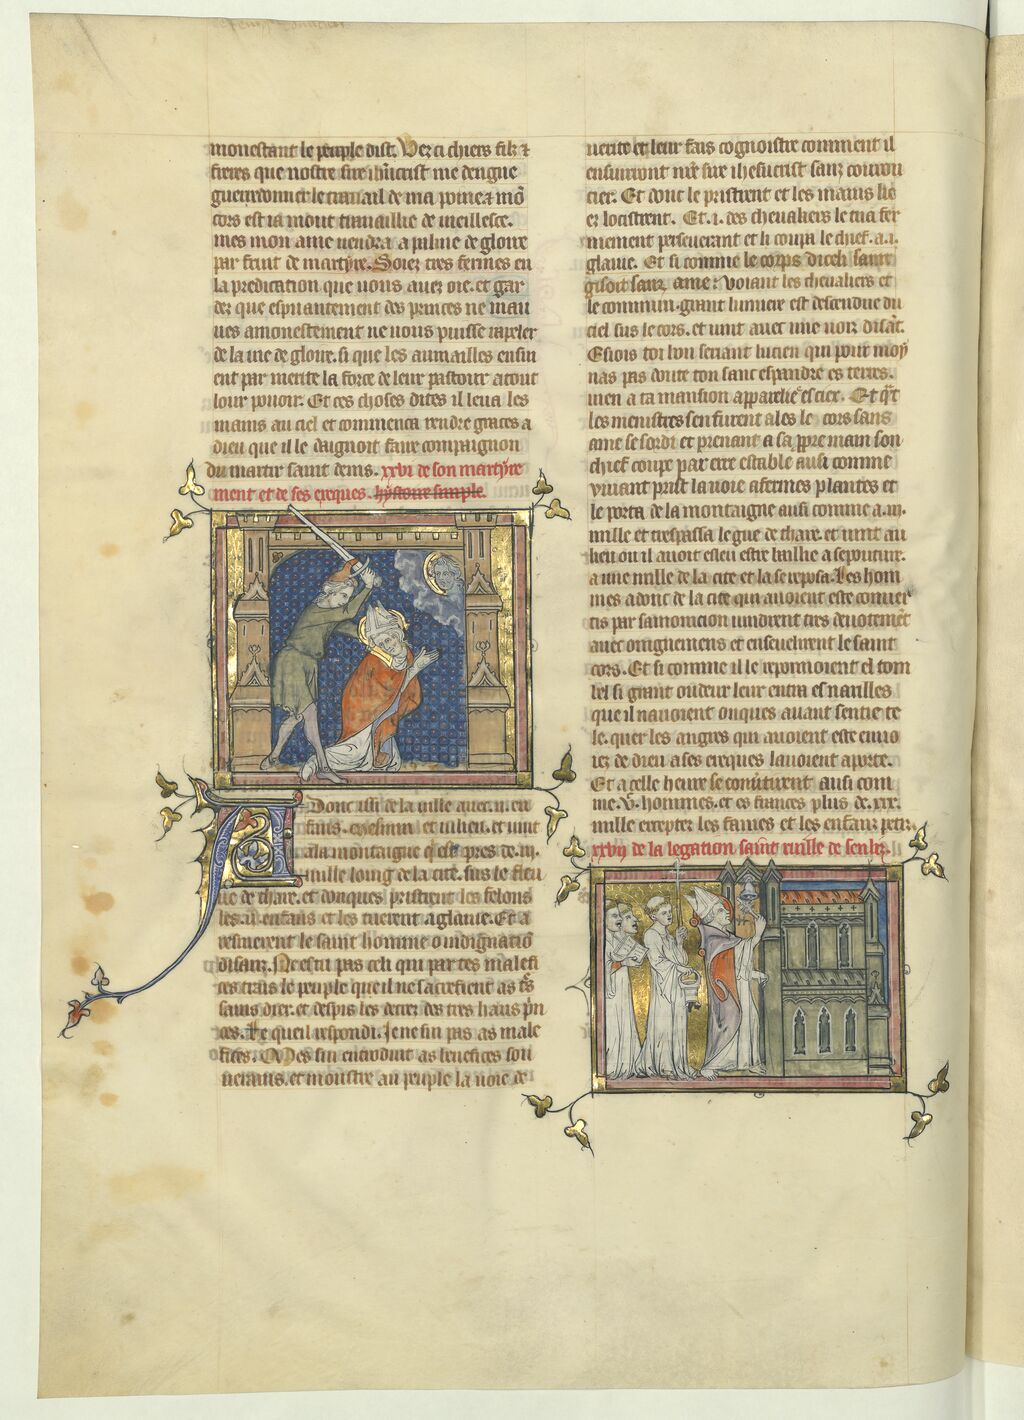 monestant le peuple dist. Vez ci chiers filz ⁊
freres que nostre sire ih'ucrist me dengne
guerredonner le trauail de ma poine ⁊ mõ
cors est ia mout trauaillie de uieillesce.
mes mon ame uendra a palme de gloire
par fruit de martyre. Soiez tres fermes en
la predication que uous auez oie. et gar
dez que espouentement des princes ne mau
ues amonestement ne uous puisse rapeler
de la uie de gloire. si que les aumailles ensiu
ent par merite la force de leur pastour a tout
lour pouoir. Et ces choses dites il leua les
mains au ciel et commenca rendre graces a
dieu que il le daignoit faire compaignon
du martir saint denis. xxvi de son martyre
ment et de ses exeques. hystoire simple.
A Donc issi de la uille auec .ii. en
fans. et iulien. et uint
a la montaigne q' est pres de .iii.
mille loing de la cite. sus le fleu
ue de thare. et donques pristrent les felons
les .ii. enfans et les tuerent a glaiue. Et a
resnierent le saint homme o indignatiõ
disanz. Ne es tu pas celi qui par tes malefi
ces trais le peuple que il ne sacrefient as
sains diex. et despis les decrez des tres haus p'n
ces. Le queil respondi. Je ne sui pas as male
fices. Mes sui as benefices son
uerains. et moustre au peuple la uoie de
uerite et leur fais cognoistre comment il
ensuiuront nr̃e sire ihesucrist sanz courou
cier. Et dont le pristrent et les mains lie
es locistrent. Et .i. des cheualiers le tua fer
mement perseuerant et li coupa le chief. a .i.
glaiue. Et si comme le corps diceli saint
gisoit sanz ame: uoiant les cheualiers et
le commun. grant lumiere est descendue du
ciel sus le cors. et uint auec une uoiz disãt.
Esiois toi bon seriant lucien qui pour moy
nas pas doute ton sanc espandre es terres.
uien a ta mansion appareliee es ciex. Et q̃t
les menistres sen furent ales le cors sans
ame se sordi et prenant a sa ppre main son
chief coupe par erre estable ausi comme
viuant prist la uoie a fermes plantes et
le porta de la montaigne ausi comme a .iii.
mille et trespassa le gue de thare. et uint au
lieu ou il auoit esleu estre baillie a sepouture.
a une mille de la cite et la se reposa. Les hom
mes adonc de la cite qui auoient este conuer
tis par sa monicion uindrent tres deuotement
auec oingnemens et enseuelirent le saint
cors. Et si comme il le reponnoient el tom
bel si grant oudeur leur entra es narilles
que il nauoient onques auant sentie te
le. quer les angres qui auoient este enuo
iez de dieu a ses exeques lauoient aporte.
Et a celle heure se conuertirent ausi com
me .v. hommes. et es fiances plus de .xxx.
mille exceptez les fames et les enfanz petiz.
xxvij de la legation saint ruille de senliz.